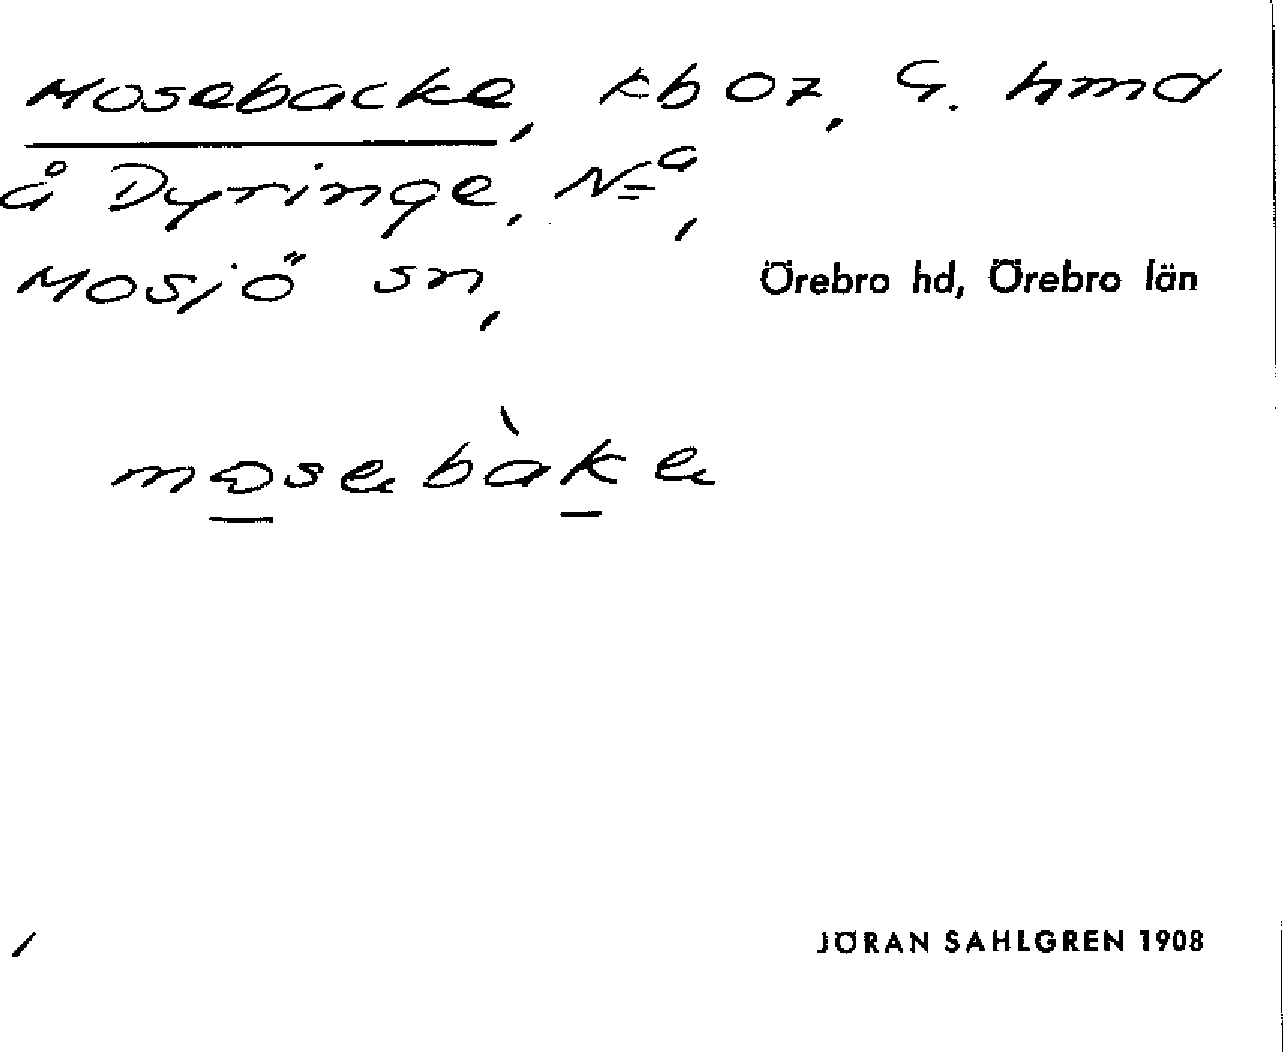 Mosebacke, kb 07, G. hmd
å Dyringe, N=a,
Mosjö sn, Örebro hd, Örebro län
mosebàke
JÖRAN SAHLGREN 1908